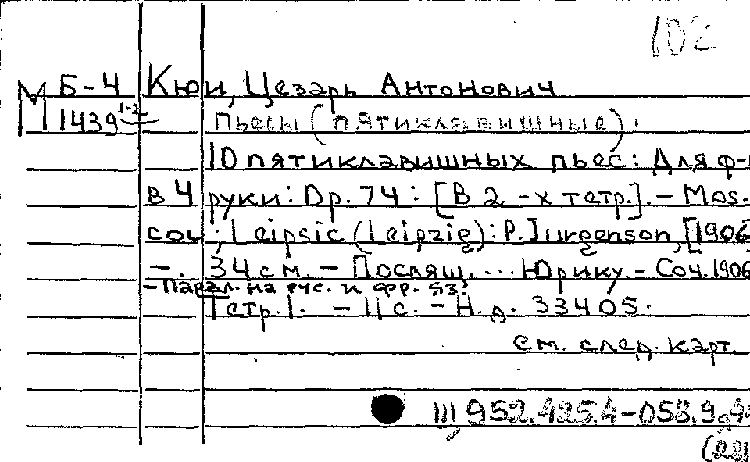 102
М Б-4 Кюи, Цезарь Антонович
1439 1-2 Пьесы (пятиклавишные).
10 пятиклавишных пьес: Для ф-
в 4 руки: Op. 74: [В 2-х тетр.]. – Mos-
cou; Leipsic (Leipzig): P. Jurgenson, [1906
–. 34 см. – Посвящ. ... Юрику. – Соч. 1906
– Парал. на рус. и фр. яз.
Тетр. 1. – 11 с. – Н. д. 33405.
см. след. карт.
952.425.4-058.9